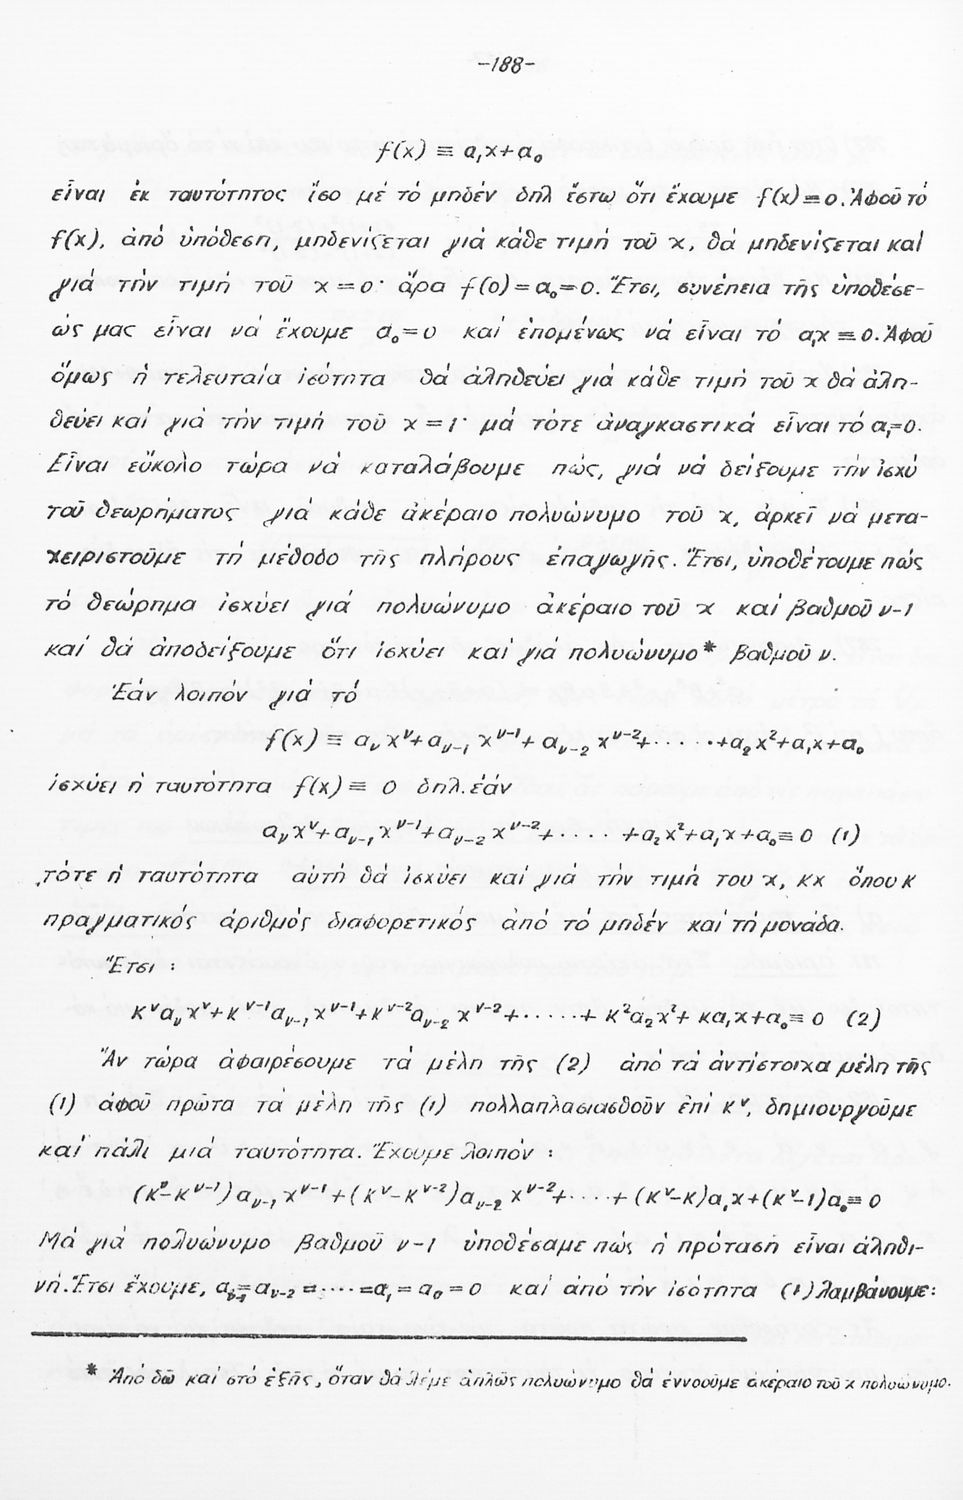 -188-
f(x) ≡ α₁x+α₀
εἶναι ἐκ ταυτότητος ἴσο μέ τό μηδέν δηλ ἔστω ὅτι ἔχουμε f(x)≡0. Ἀφοῦ τό
f(x), ἀπό ὑπόθεση, μηδενίζεται γιά κάθε τιμή τοῦ x, θά μηδενίζεται καί
γιά τήν τιμή τοῦ x=0· ἄρα f(0)=α₀=0. Ἔτσι, συνέπεια τῆς ὑποθέσε-
ώς μας εἶναι νά ἔχουμε α₀=0 καί ἑπομένως νά εἶναι τό α₁x ≡ 0. Ἀφοῦ
ὅμως ἡ τελευταία ἰσότητα θά ἀληθεύει γιά κάθε τιμή τοῦ x θά ἀλη-
θεύει καί γιά τήν τιμή τοῦ x=1· μά τότε ἀναγκαστικά εἶναι τό α₁=0.
Εἶναι εὔκολο τώρα νά καταλάβουμε πώς, γιά νά δείξουμε τήν ἰσχύ
τοῦ θεωρήματος γιά κάθε ἀκέραιο πολυώνυμο τοῦ x, ἀρκεῖ νά μετα-
χειριστοῦμε τή μέθοδο τῆς πλήρους ἐπαγωγῆς. Ἔτσι, ὑποθέτουμε πώς
τό θεώρημα ἰσχύει γιά πολυώνυμο ἀκέραιο τοῦ x καί βαθμοῦ ν-1
καί θά ἀποδείξουμε ὅτι ἰσχύει καί γιά πολυώνυμο* βαθμοῦ ν.
Ἐάν λοιπόν γιά τό
f(x) ≡ α_ν x^ν+α_{ν-1} x^{ν-1}+α_{ν-2} x^{ν-2}+······+α₂x²+α₁x+α₀
ἰσχύει ἡ ταυτότητα f(x) ≡ 0 δηλ. ἐάν
α_ν x^ν+α_{ν-1} x^{ν-1}+α_{ν-2} x^{ν-2}+···· +α₂x²+α₁x+α₀≡0 (1)
τότε ἡ ταυτότητα αὐτή θά ἰσχύει καί γιά τήν τιμή του x, κx ὅπου κ
πραγματικός ἀριθμός διαφορετικός ἀπό τό μηδέν καί τή μονάδα.
Ἔτσι :
κ^ν α_ν x^ν+κ^{ν-1} α_{ν-1} x^{ν-1}+κ^{ν-2} α_{ν-2} x^{ν-2}+·····+ κ²α₂x²+ κα₁x+α₀≡0 (2)
Ἄν τώρα ἀφαιρέσουμε τά μέλη τῆς (2) ἀπό τά ἀντίστοιχα μέλη τῆς
(1) ἀφοῦ πρῶτα τά μέλη τῆς (1) πολλαπλασιασθοῦν ἐπί κ^ν, δημιουργοῦμε
καί πάλι μιά ταυτότητα. Ἔχουμε λοιπόν :
(κ^ν-κ^{ν-1})α_{ν-1} x^{ν-1}+(κ^ν-κ^{ν-2})α_{ν-2} x^{ν-2}+····+(κ^ν-κ)α₁x+(κ^ν-1)α₀≡0
Μά γιά πολυώνυμο βαθμοῦ ν-1 ὑποθέσαμε πώς ἡ πρόταση εἶναι ἀληθι-
νή. Ἔτσι ἔχουμε, α_{ν-1}=α_{ν-2}=····=α₁=α₀=0 καί ἀπό τήν ἰσότητα (1) λαμβάνουμε:
* Ἀπό δῶ καί στό ἑξῆς, ὅταν θά λέμε ἁπλῶς πολυώνυμο θά ἐννοοῦμε ἀκέραιο τοῦ x πολυώνυμο.